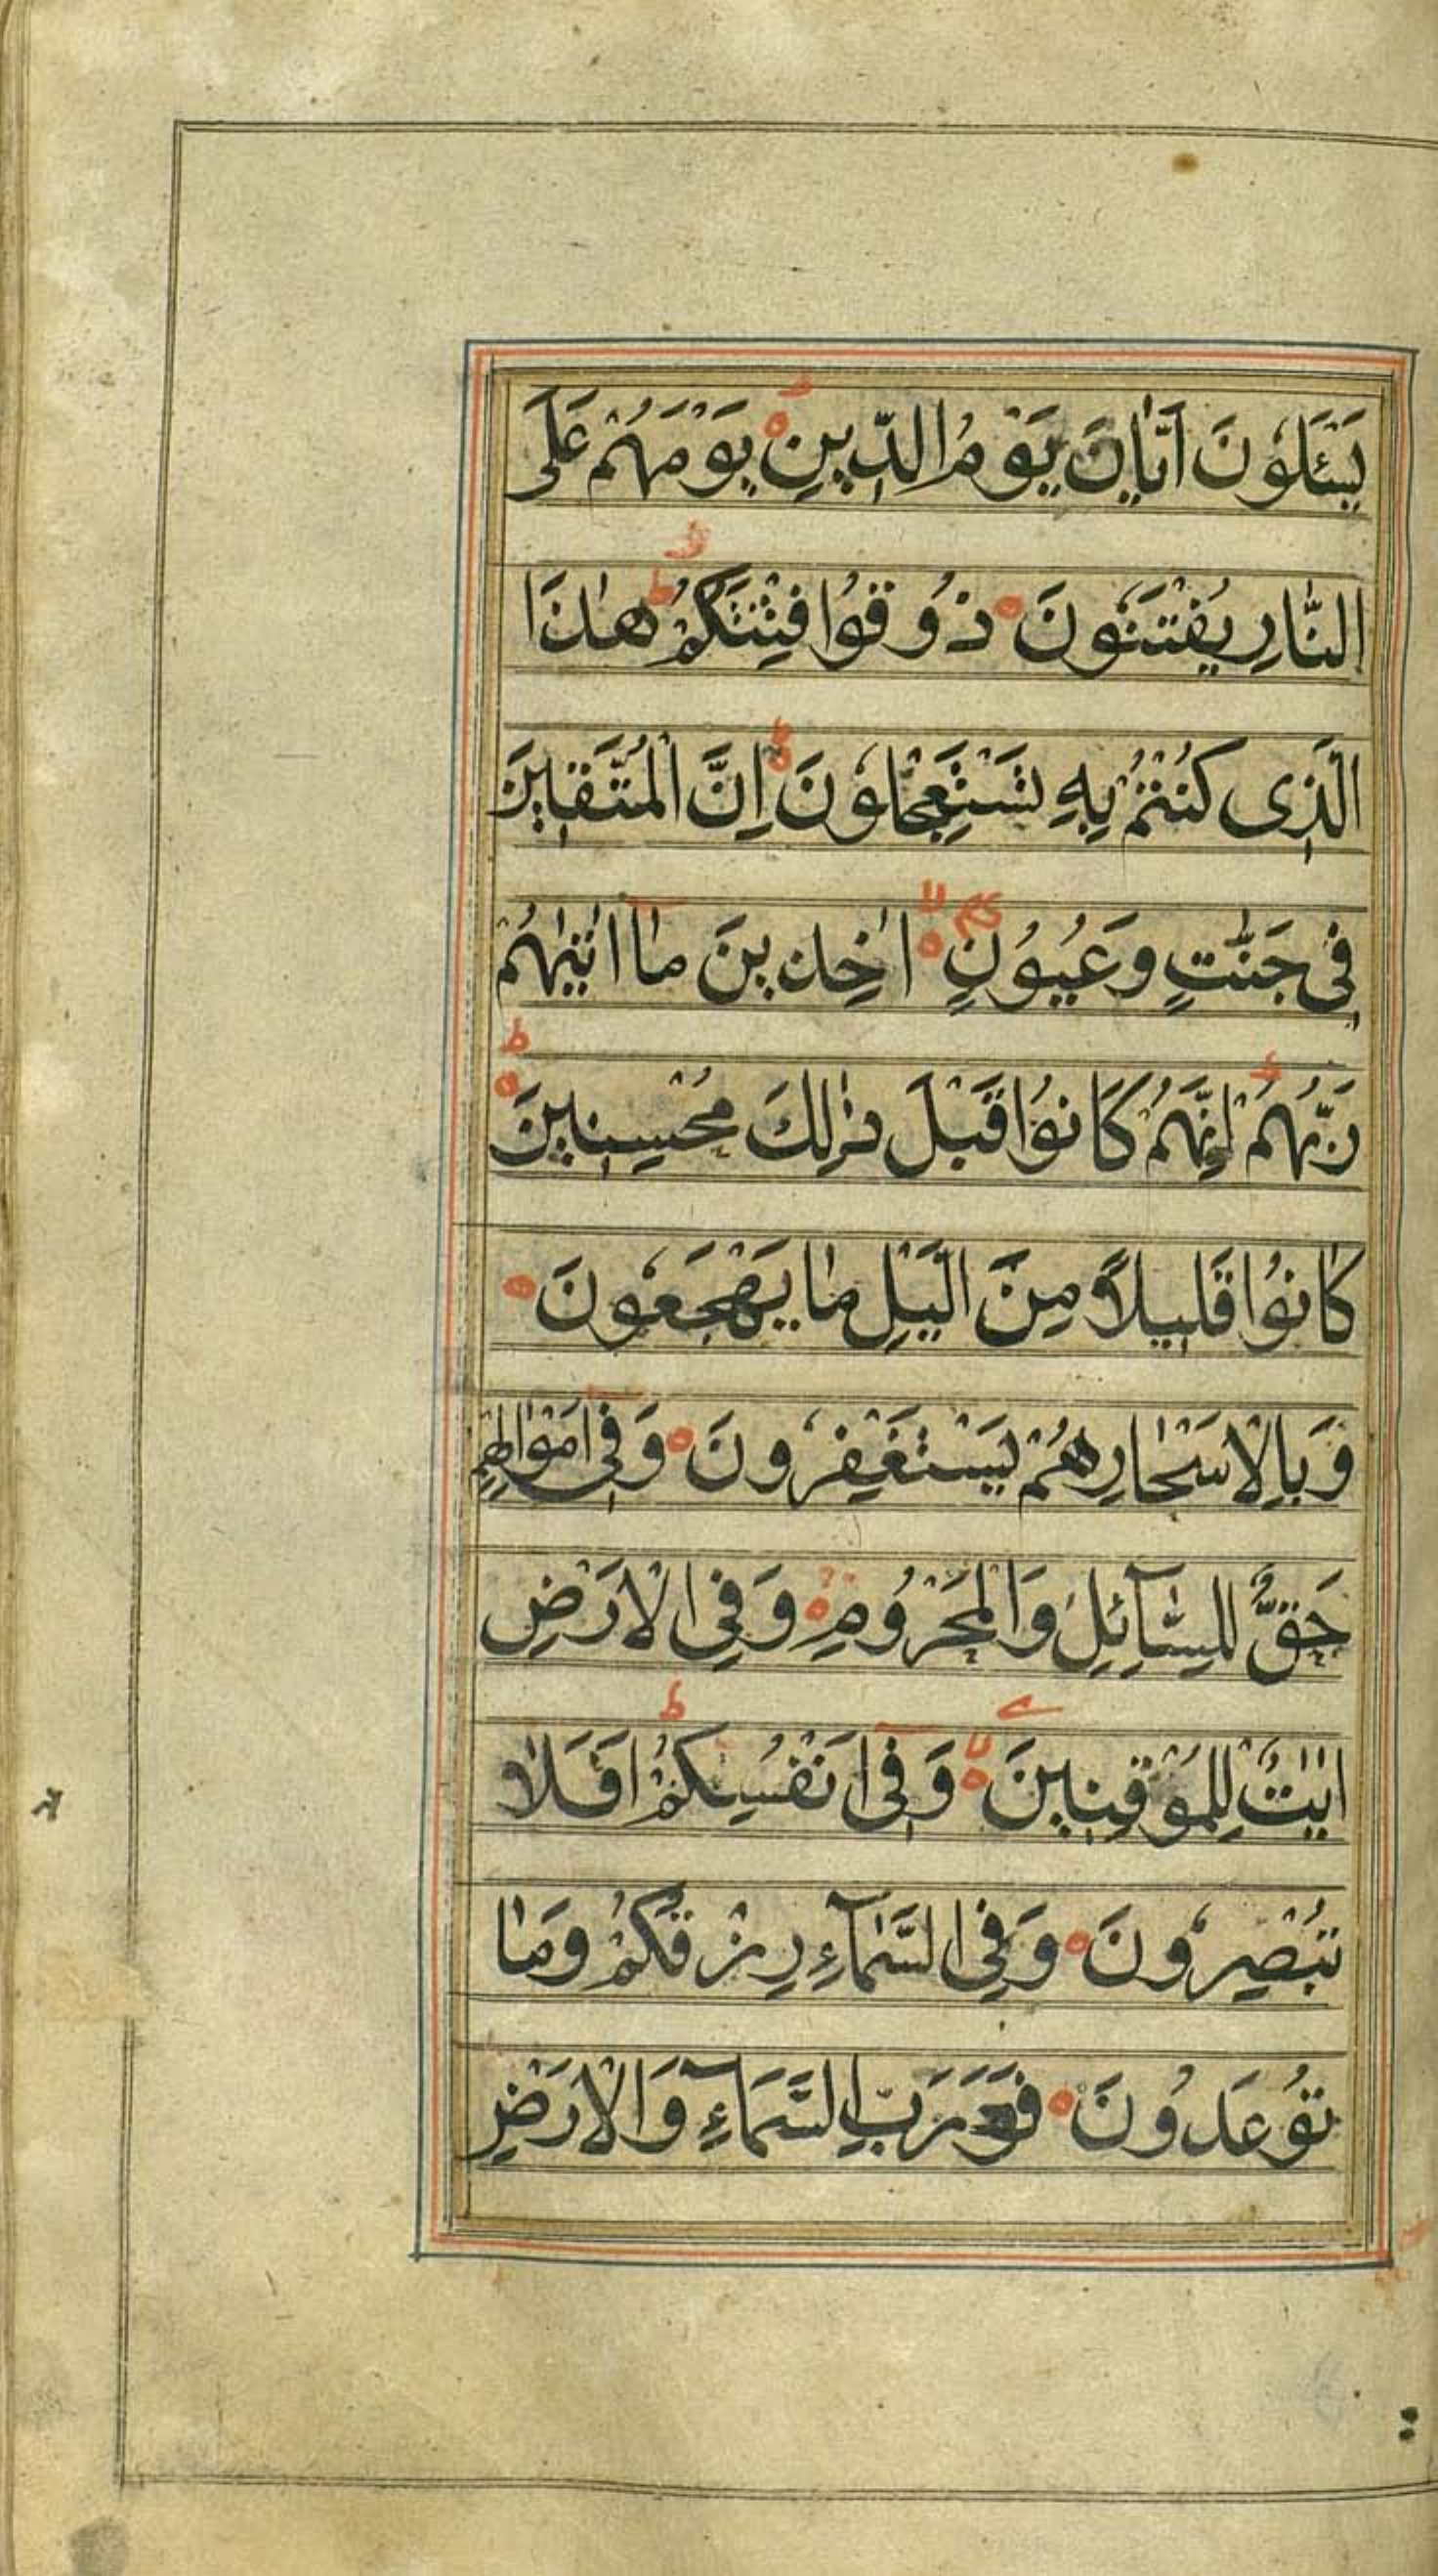 يَسْـَٔلُونَ اَيَّانَ يَوْمُ الدِّينِ يَوْمَهُمْ عَلَى
النَّارِ يُفْتَنُونَ ذُوقُوا فِتْنَتَكُمْ هٰذَا
الَّذِى كُنْتُمْ بِهِ تَسْتَعْجِلُونَ اِنَّ الْمُتَّقِينَ
فِى جَنّٰتٍ وَعُيُونٍ اٰخِذِينَ مٰا اٰتٰيهُمْ
رَبُّهُمْ اِنَّهُمْ كَانُوا قَبْلَ ذٰلِكَ مُحْسِنِينَ
كٰانُوا قَلِيلًا مِنَ الَّيْلِ مٰا يَهْجَعُونَ
وَبِالْاَسْحٰارِهُمْ يَسْتَغْفِرُونَ وَفِى اَمْوٰالِهِمْ
حَقٌّ لِلسَّآئِلِ وَالْمَحْرُومِ وَفِى الْاَرْضِ
اٰيٰتٌ لِلْمُوْقِنِينَ وَفِى اَنْفُسِكُمْ اَفَلٰا
تُبْصِرُونَ وَفِى السَّمٰآءِ رِزْقُكُمْ وَمٰا
تُوعَدُونَ فَوَرَبِّ السَّمَآءِ وَالْاَرْضِ